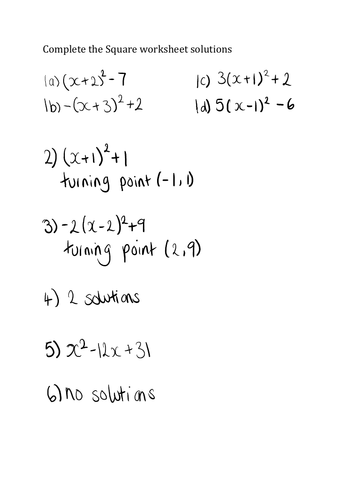 Complete the Square worksheet solutions
1a) (x+2)² -7
1c) 3(x+1)² +2
1b) -(x+3)² +2
1d) 5(x-1)² -6
2) (x+1)² +1
turning point (-1,1)
3) -2(x-2)²+9
turning point (2,9)
4) 2 solutions
5) x² -12x +31
6) no solutions